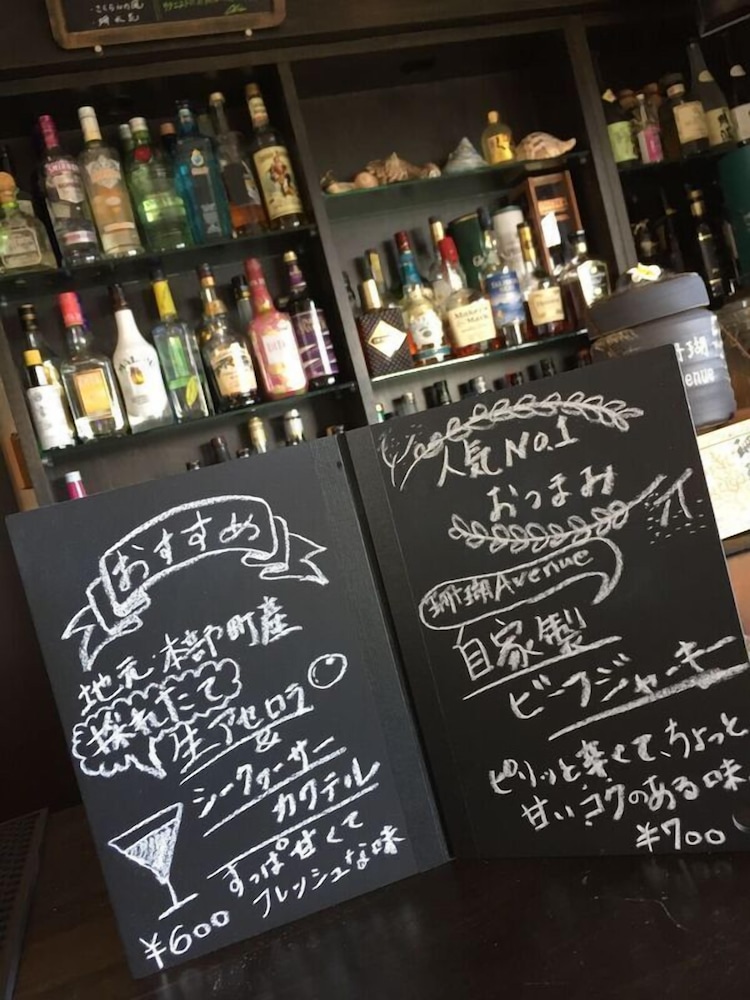 おすすめ
地元・本部町産
採れたて
生アセロラ
&
シークァーサー
カクテル
すっぱ甘くて
フレッシュな味
¥600
人気No.1
おつまみ
珊瑚Avenue
自家製
ビーフジャーキー
ピリッと辛くて、ちょっと
甘いコクのある味
¥700
瑚
enue
Maker's
Mark